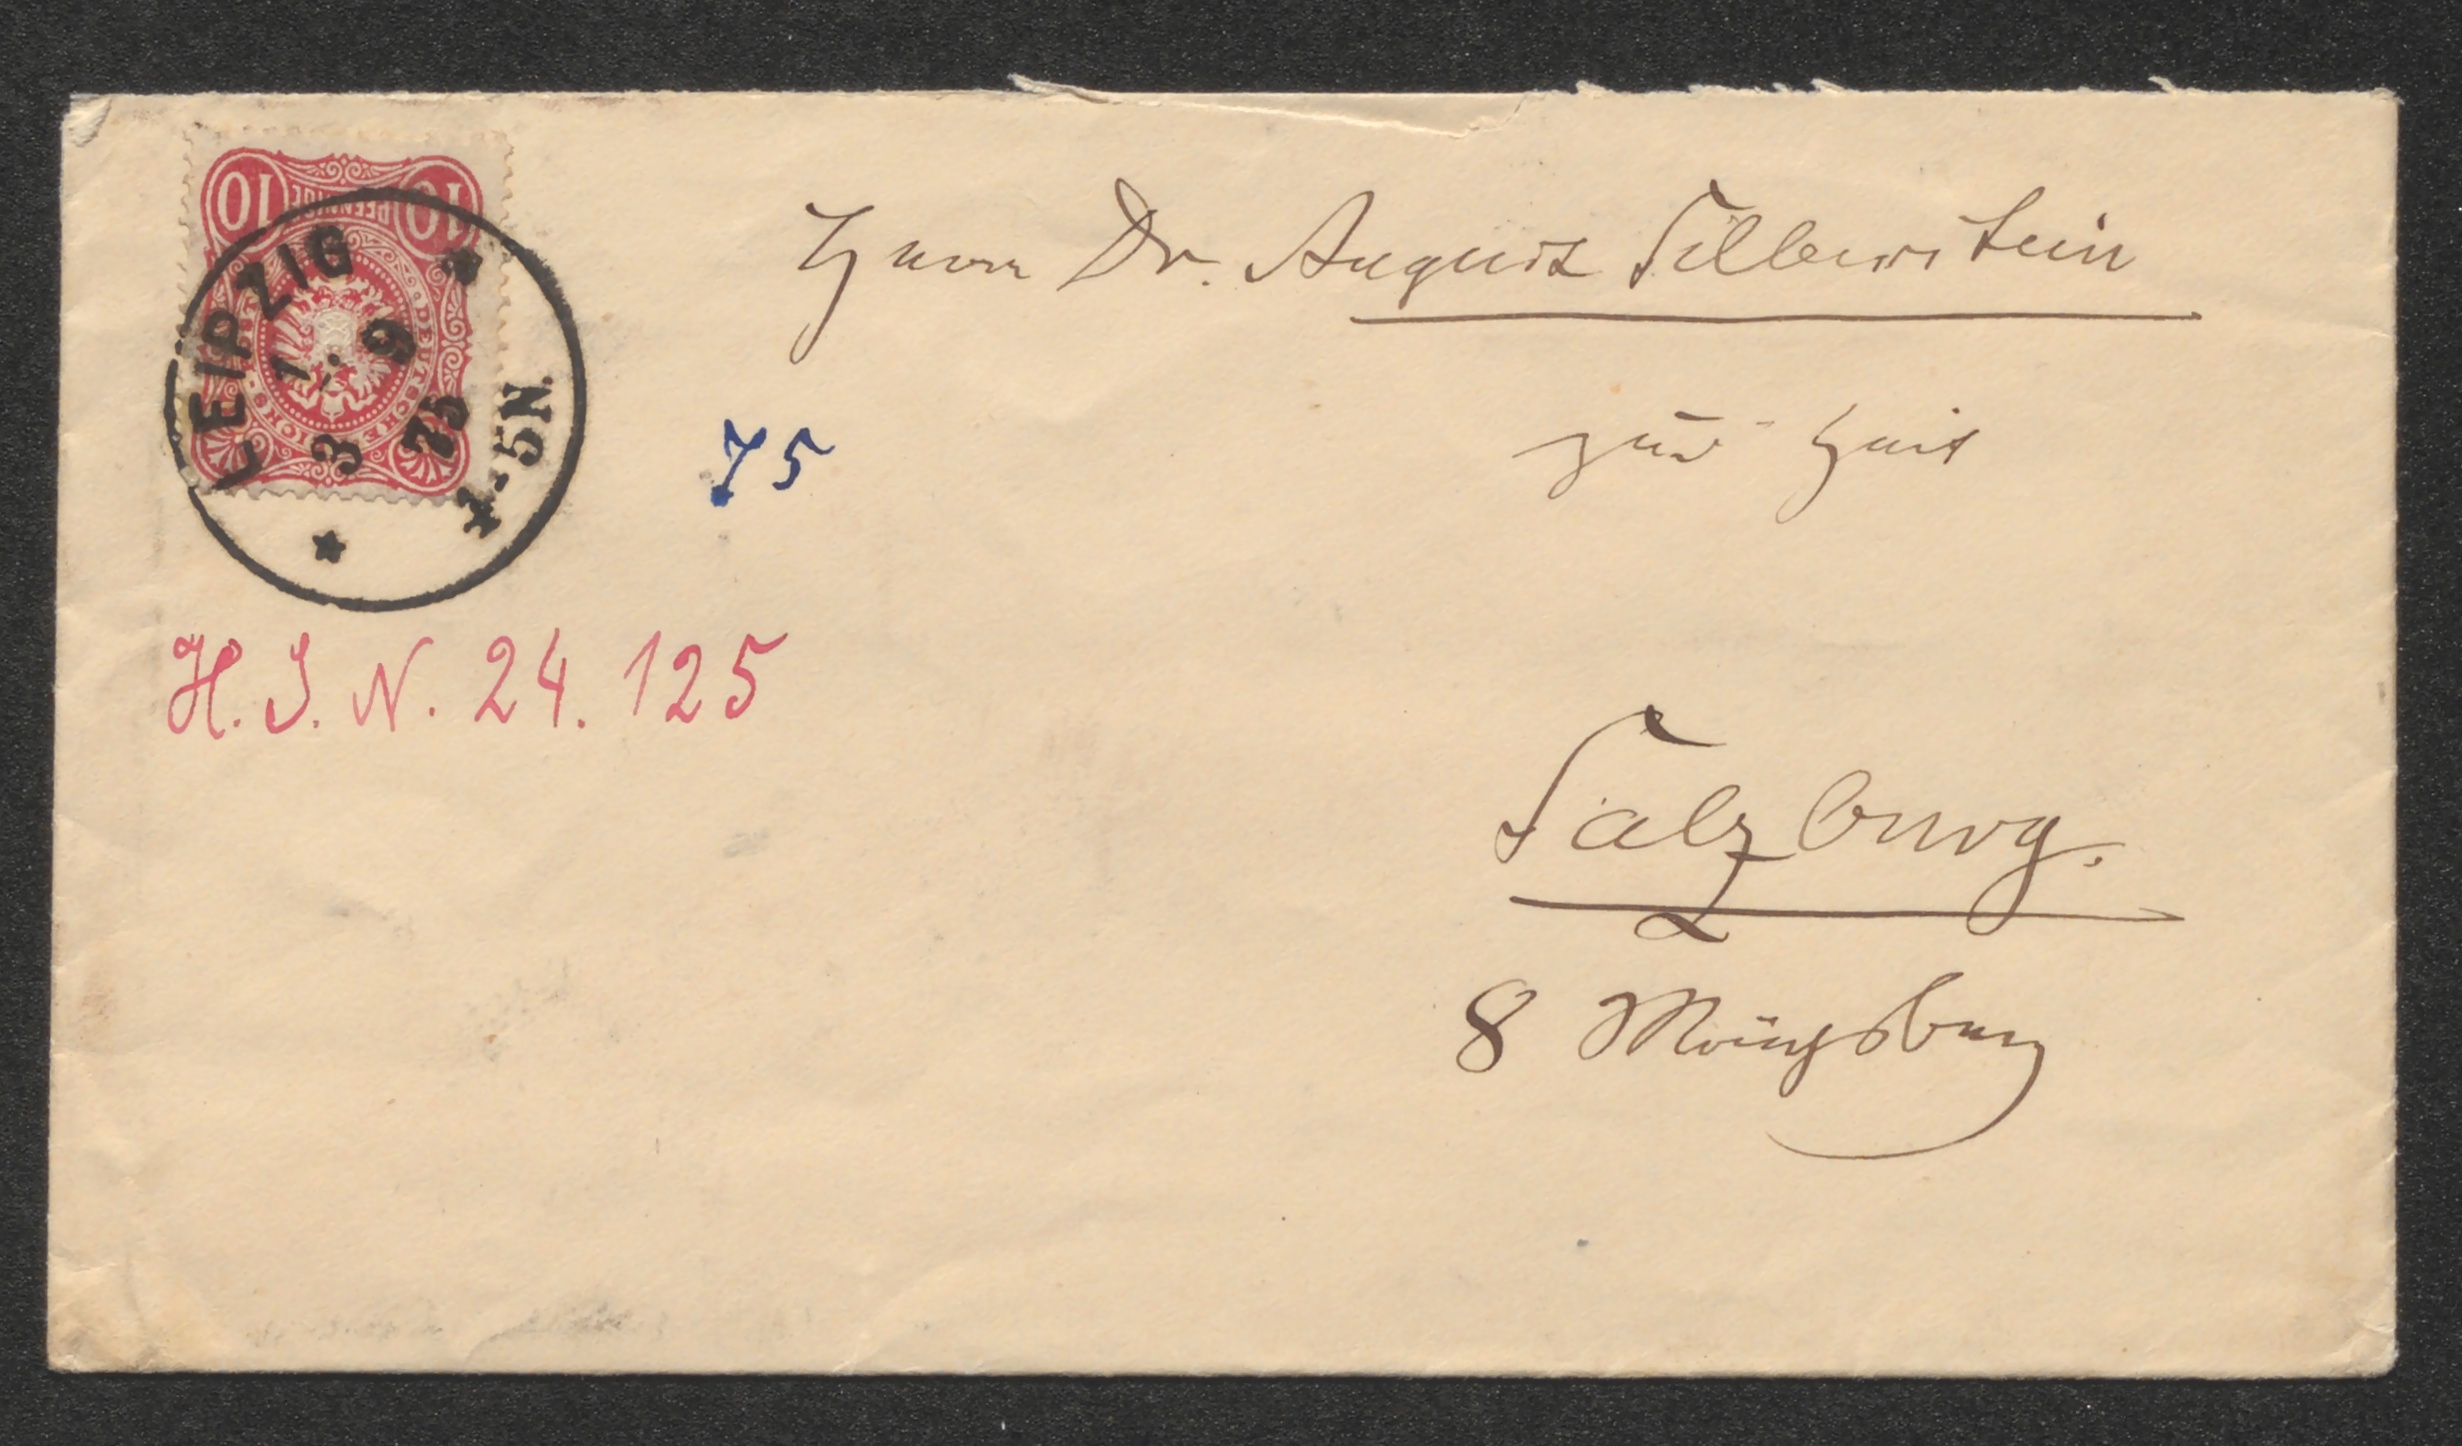 10 PFENNIGE 10
DEUTSCHE REICHS
LEIPZIG
1
9
3 75
4-5N.
Herrn Dr. August Silberstein
zur Zeit
75
H. I. N. 24. 125
Salzburg.
8 Mönchsberg